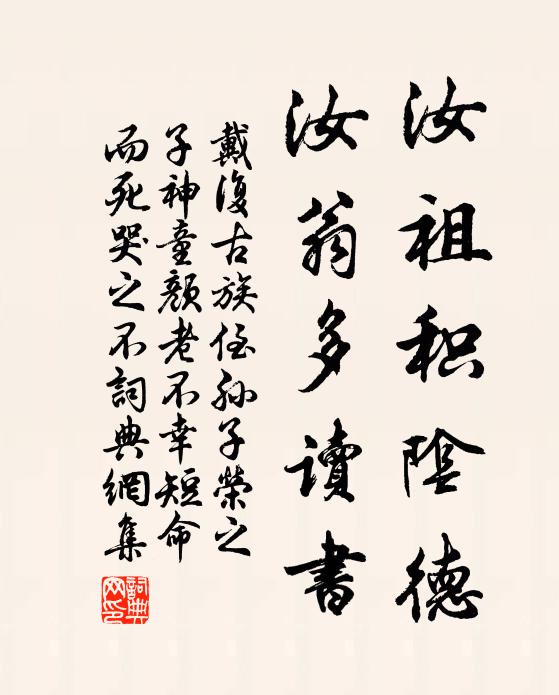 汝祖积陰德
汝翁多讀書
戴復古族侄孙子榮之
子神童顏老不幸短命
而死哭之不詞典網集
詞典網印